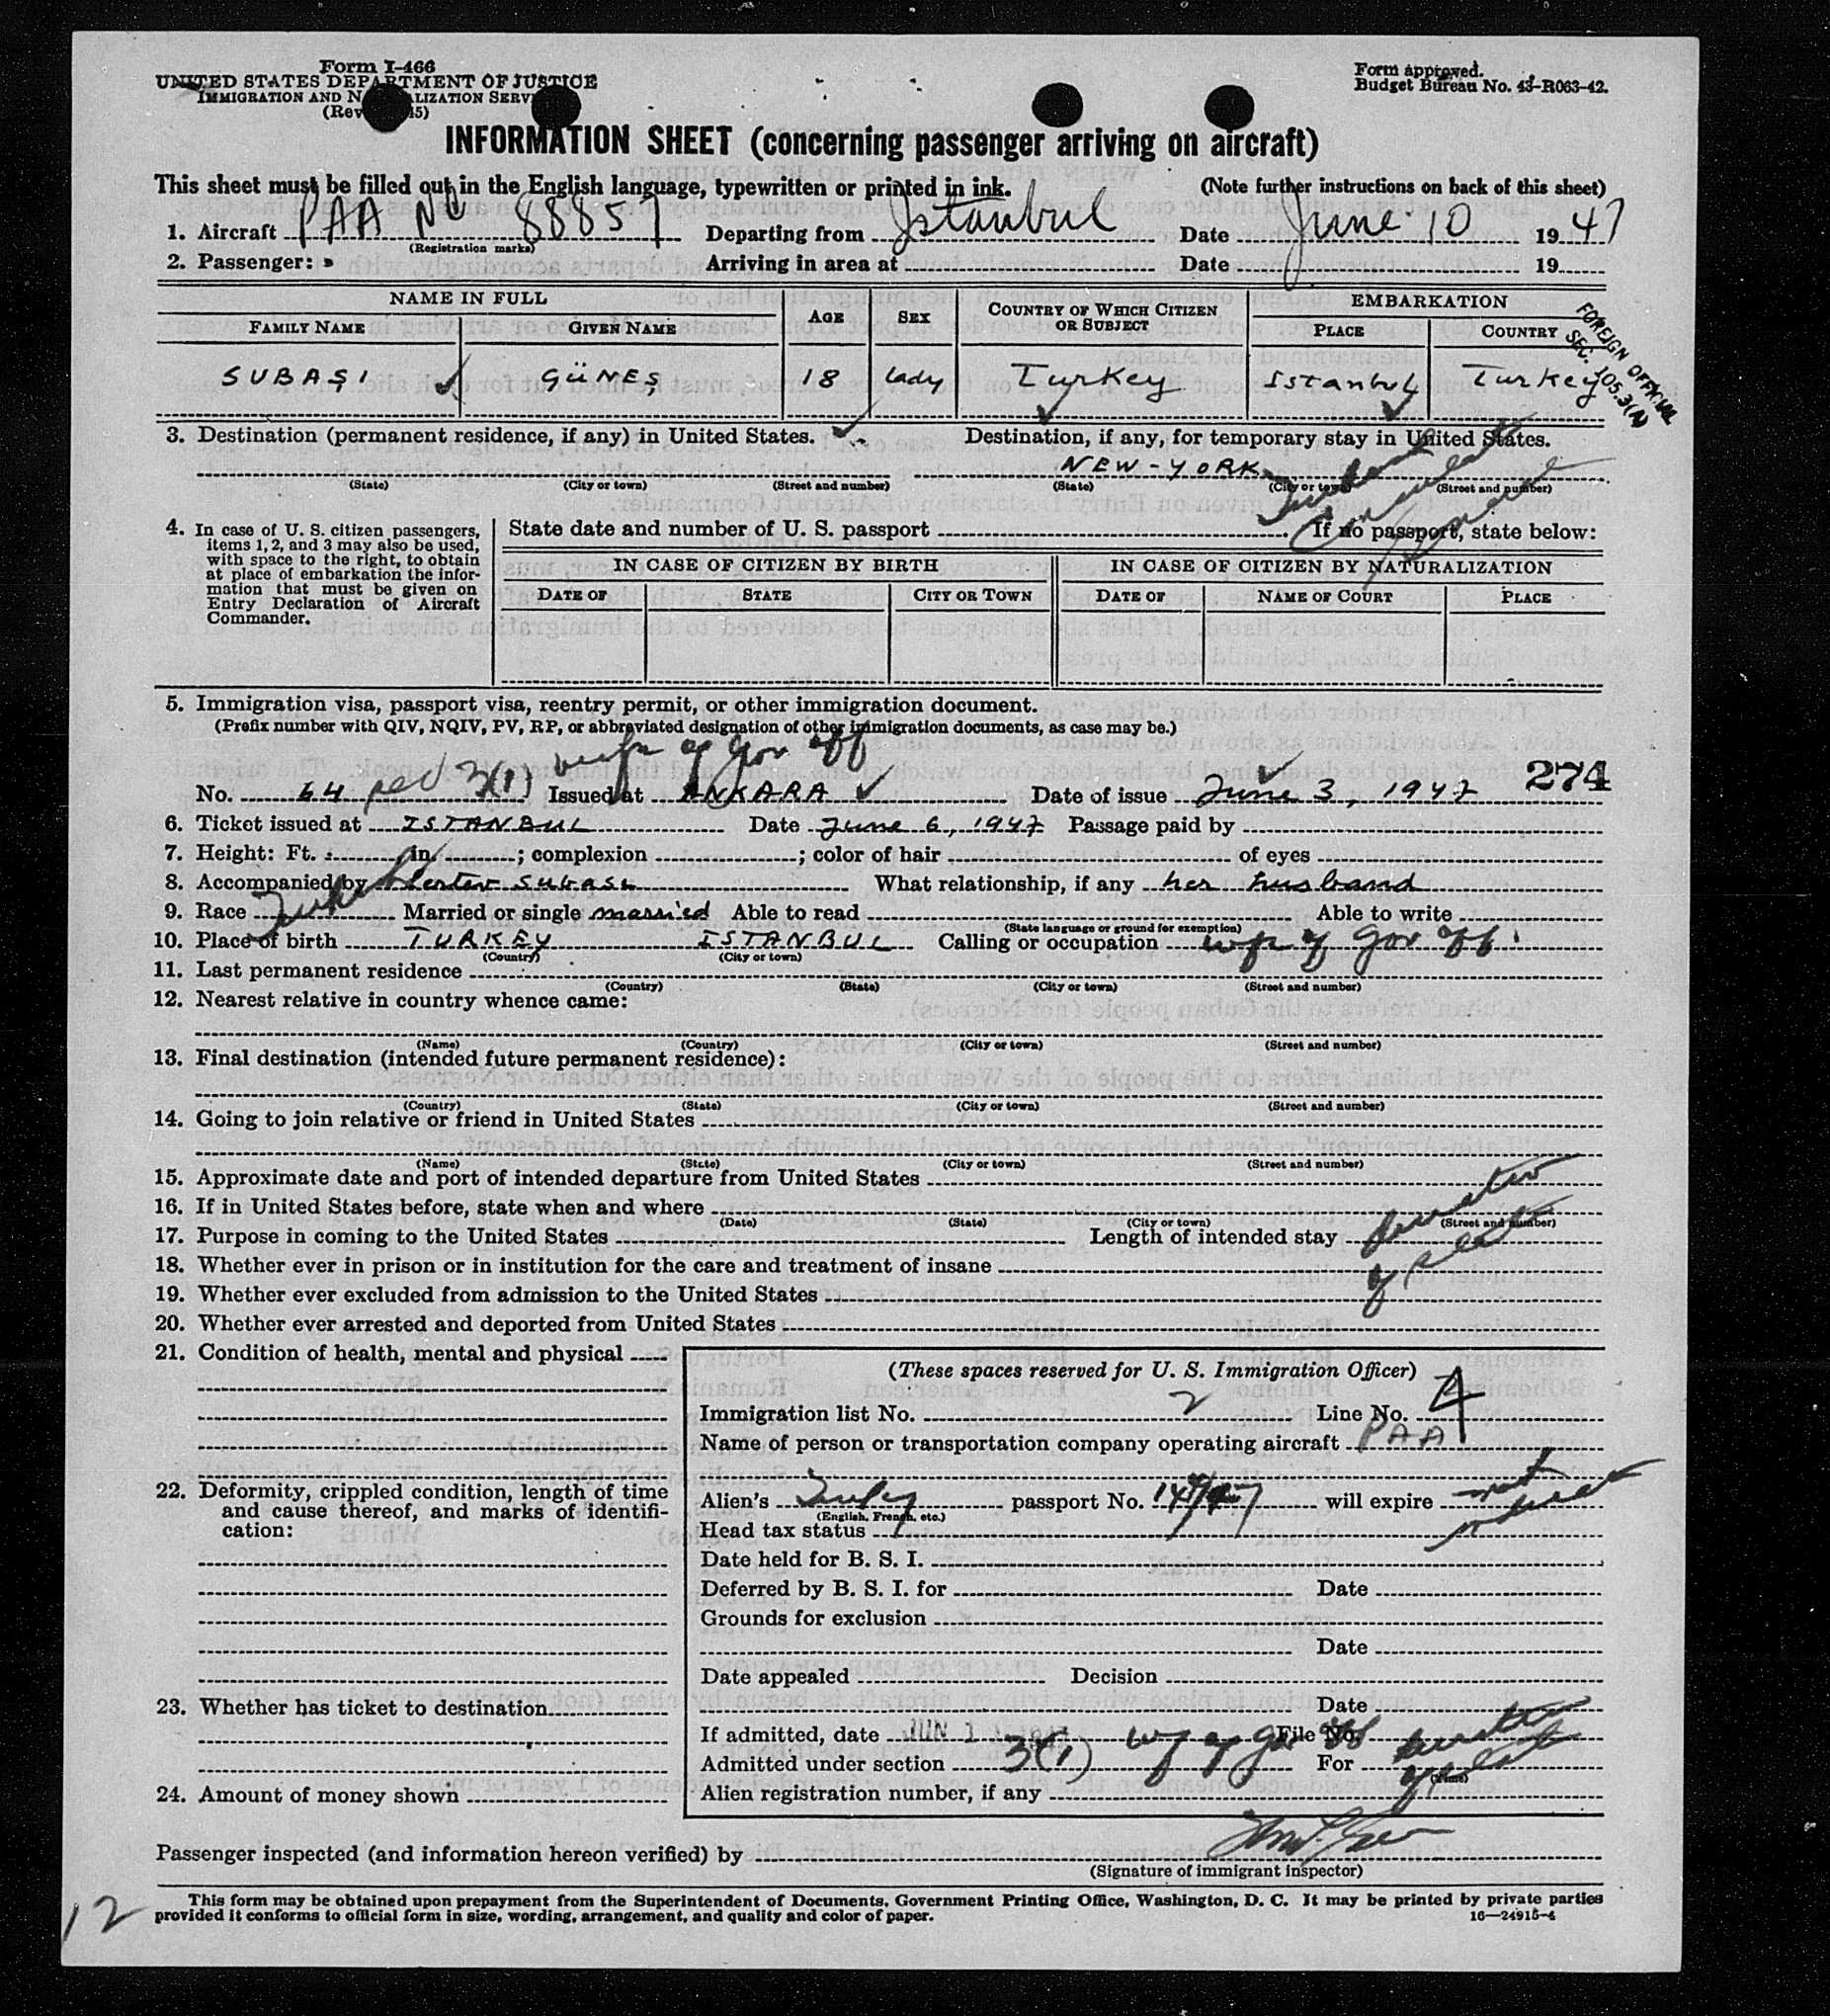 Form I-466
UNITED STATES DEPARTMENT OF JUSTICE
IMMIGRATION AND N ALIZATION SERV
(Rev. 45)
Form approved.
Budget Bureau No. 43-R063-42.
INFORMATION SHEET (concerning passenger arriving on aircraft)
This sheet must be filled out in the English language, typewritten or printed in ink. (Note further instructions on back of this sheet)
1. Aircraft PAA NC 88857 Departing from Istanbul Date June 10 1947
(Registration marks)
2. Passenger: Arriving in area at Date 19
NAME IN FULL AGE SEX COUNTRY OF WHICH CITIZEN OR SUBJECT EMBARKATION
FAMILY NAME GIVEN NAME PLACE COUNTRY
FOREIGN OFFICIAL
SEC. 105.3(A)
SUBAŞI GÜNEŞ 18 Lady Turkey Istanbul Turkey
3. Destination (permanent residence, if any) in United States. Destination, if any, for temporary stay in United States.
NEW-YORK
(State) (City or town) (Street and number) (State) (City or town) (Street and number)
4. In case of U. S. citizen passengers, items 1, 2, and 3 may also be used, with space to the right, to obtain at place of embarkation the information that must be given on Entry Declaration of Aircraft Commander.
State date and number of U. S. passport If no passport, state below:
IN CASE OF CITIZEN BY BIRTH IN CASE OF CITIZEN BY NATURALIZATION
DATE OF STATE CITY OR TOWN DATE OF NAME OF COURT PLACE
5. Immigration visa, passport visa, reentry permit, or other immigration document.
(Prefix number with QIV, NQIV, PV, RP, or abbreviated designation of other immigration documents, as case may be.)
wife of Gov off
274
No. 64 3(1) Issued at ANKARA Date of issue June 3, 1947
6. Ticket issued at ISTANBUL Date June 6, 1947 Passage paid by
7. Height: Ft. in. ; complexion ; color of hair of eyes
8. Accompanied by Subası What relationship, if any her husband
9. Race Turkish Married or single married Able to read Able to write
(State language or ground for exemption)
10. Place of birth TURKEY ISTANBUL Calling or occupation wf of Gov off.
(Country) (City or town)
11. Last permanent residence
(Country) (State) (City or town) (Street and number)
12. Nearest relative in country whence came:
(Name) (Country) (City or town) (Street and number)
13. Final destination (intended future permanent residence):
(Country) (State) (City or town) (Street and number)
14. Going to join relative or friend in United States
(Name) (State) (City or town) (Street and number)
15. Approximate date and port of intended departure from United States
16. If in United States before, state when and where
(Date) (State) (City or town) (Street and number)
17. Purpose in coming to the United States Length of intended stay duration of stat
18. Whether ever in prison or in institution for the care and treatment of insane
19. Whether ever excluded from admission to the United States
20. Whether ever arrested and deported from United States
21. Condition of health, mental and physical
(These spaces reserved for U. S. Immigration Officer)
Immigration list No. 2 Line No. 4
Name of person or transportation company operating aircraft PAA
22. Deformity, crippled condition, length of time and cause thereof, and marks of identification:
Alien's passport No. will expire
(English, French, etc.)
Head tax status
Date held for B. S. I.
Deferred by B. S. I. for Date
Grounds for exclusion
Date
Date appealed Decision
23. Whether has ticket to destination
Date
If admitted, date JUN File No.
Admitted under section 3(1) wf of Gov off For duration of stat
(Time)
24. Amount of money shown
Alien registration number, if any
Passenger inspected (and information hereon verified) by
(Signature of immigrant inspector)
12
This form may be obtained upon prepayment from the Superintendent of Documents, Government Printing Office, Washington, D. C. It may be printed by private parties
provided it conforms to official form in size, wording, arrangement, and quality and color of paper. 16—24915-4